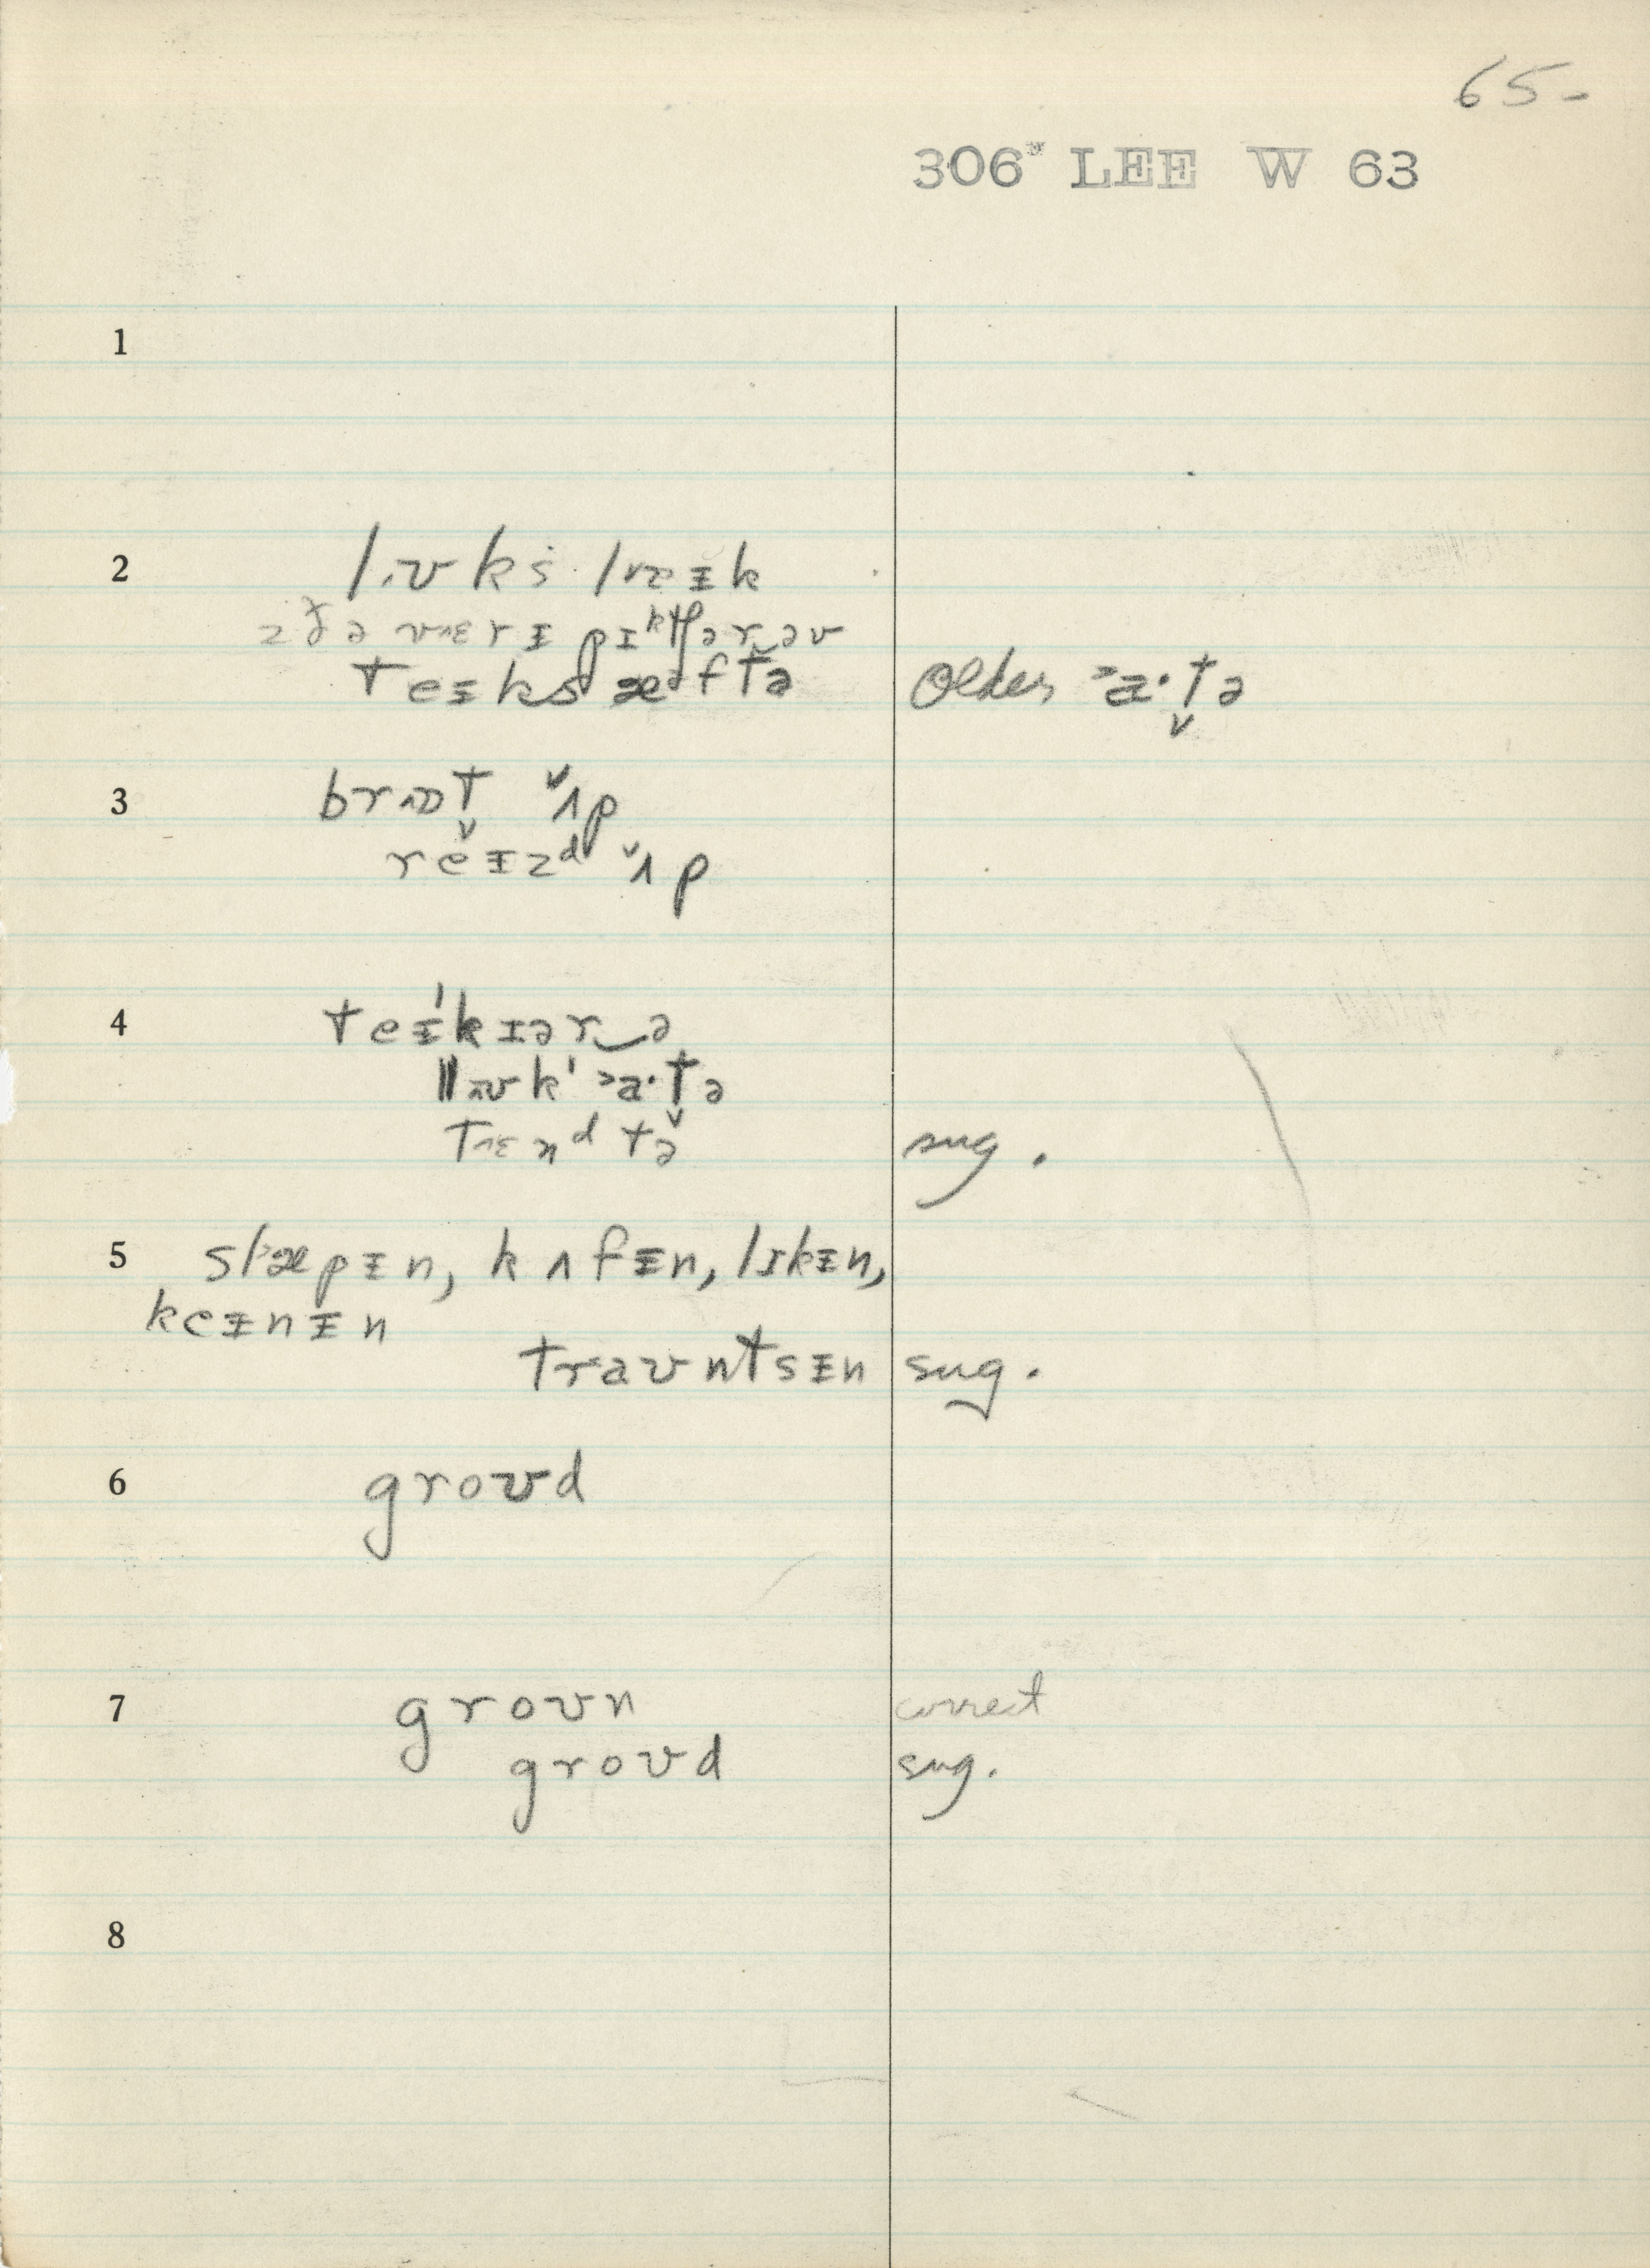 65-
306* LEE W 63
1
2 lɪʊks lɑɪk
z ðə vɛrɨ pɪktʃərəv
teɨks æftə older ɑ·tə
3 brɔt ʌp
reɨzd ʌp
4 teɨk kɪər ə
lʊk ɑ·tə
tɛnd tə sug.
5 slæpɨn, kʌfɨn, lɪkɨn,
keɨnɨn
traʊntsɨn sug.
6 groʊd
7 groʊn correct
groʊd sug.
8